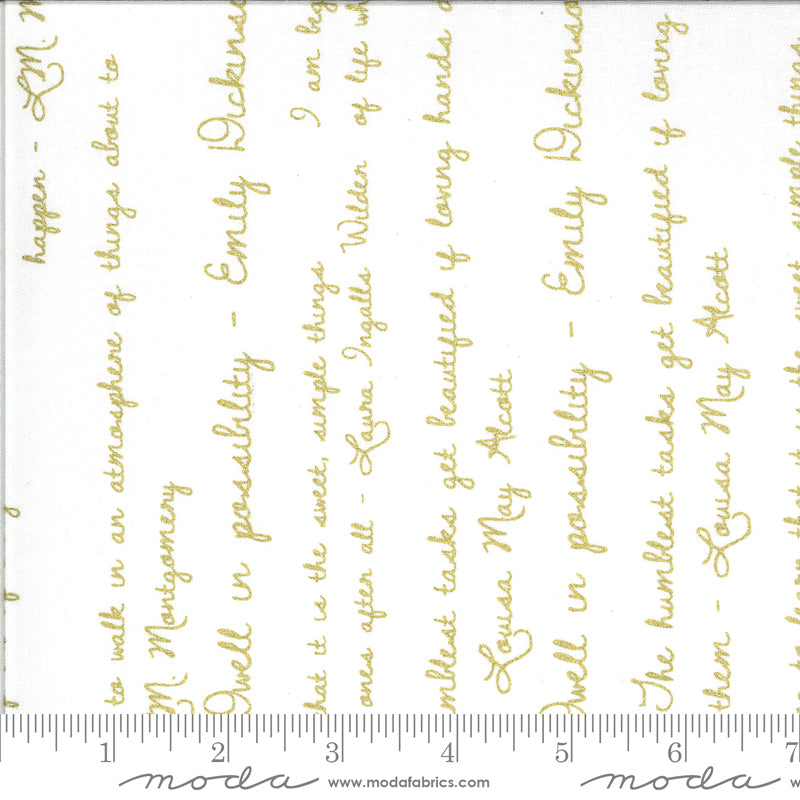 happen - L.M. M
to walk in an atmosphere of things about to
M. Montgomery
Dwell in possibility - Emily Dickinso
hat it is the sweet, simple things
I am beg
ones after all - Laura Ingalls Wilder
of life wh
mblest tasks get beautified if loving hands
Louisa May Alcott
Dwell in possibility - Emily Dickinso
The humblest tasks get beautified if loving
them - Louisa May Alcott
to learn that it is the sweet, simple things
1 2 3 4 5 6 7
moda www.modafabrics.com moda w